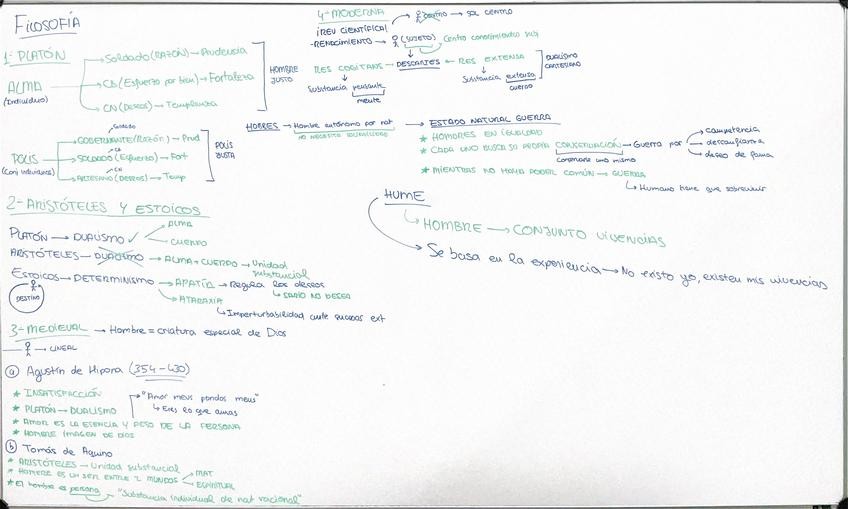 FILOSOFÍA
1- PLATÓN
ALMA
(Individuo)
Soldado (RAZÓN) → Prudencia
CB (Esfuerzo por bien) → Fortaleza
CN (DESEOS) → Templanza
HOMBRE
JUSTO
POLIS
(Conj individuos)
Soldado
GOBERNANTE (Razón) → Prud
CB
SOLDADO (Esfuerzo) → Fort
CN
ARTESANO (DESEOS) → Temp
POLIS
JUSTA
2- ARISTÓTELES Y ESTOICOS
PLATÓN → DUALISMO ✓
ALMA
CUERPO
ARISTÓTELES → DUALISMO → ALMA + CUERPO → Unidad
substancial
ESTOICOS → DETERMINISMO → APATÍA → Regula los deseos
↳ SABIO NO DESEA
DESTINO
ATARAXIA
↳ Imperturbabilidad ante ext
3- MEDIEVAL → Hombre = criatura especial de Dios
→ LINEAL
a Agustín de Hipona (354-430)
* INSATISFACCIÓN
* PLATÓN → DUALISMO
"Amor meus pondos meus"
↳ Eres lo que amas
* AMOR ES LA ESENCIA Y PESO DE LA PERSONA
* HOMBRE IMAGEN DE DIOS
b Tomás de Aquino
* ARISTÓTELES → Unidad substancial
* HOMBRE ES UN SER ENTRE 2 MUNDOS
MAT
ESPIRITUAL
* El hombre es persona
"Substancia individual de nat racional"
4- MODERNA
¡REV CIENTÍFICA!
→ SOL CENTRO
-RENACIMIENTO → (SUJETO)
Centro conocimiento subj
RES COGITANS ← DESCARTES → RES EXTENSA
Substancia pensante
mente
Substancia extensa
cuerpo
DUALISMO
CARTESIANO
HOBBES → Hombre autónomo por nat → ESTADO NATURAL GUERRA
NO NECESITO SOCIABILIDAD
* HOMBRES EN IGUALDAD
* CADA UNO BUSCA SU PROPIA CONSERVACIÓN → Guerra por
Conservarse uno mismo
competencia
desconfianza
deseo de fama
* MIENTRAS NO HAYA PODER COMÚN → GUERRA
↳ Humano tiene que sobrevivir
HUME
↳ HOMBRE → CONJUNTO VIVENCIAS
Se basa en la experiencia → No existo yo, existen mis vivencias